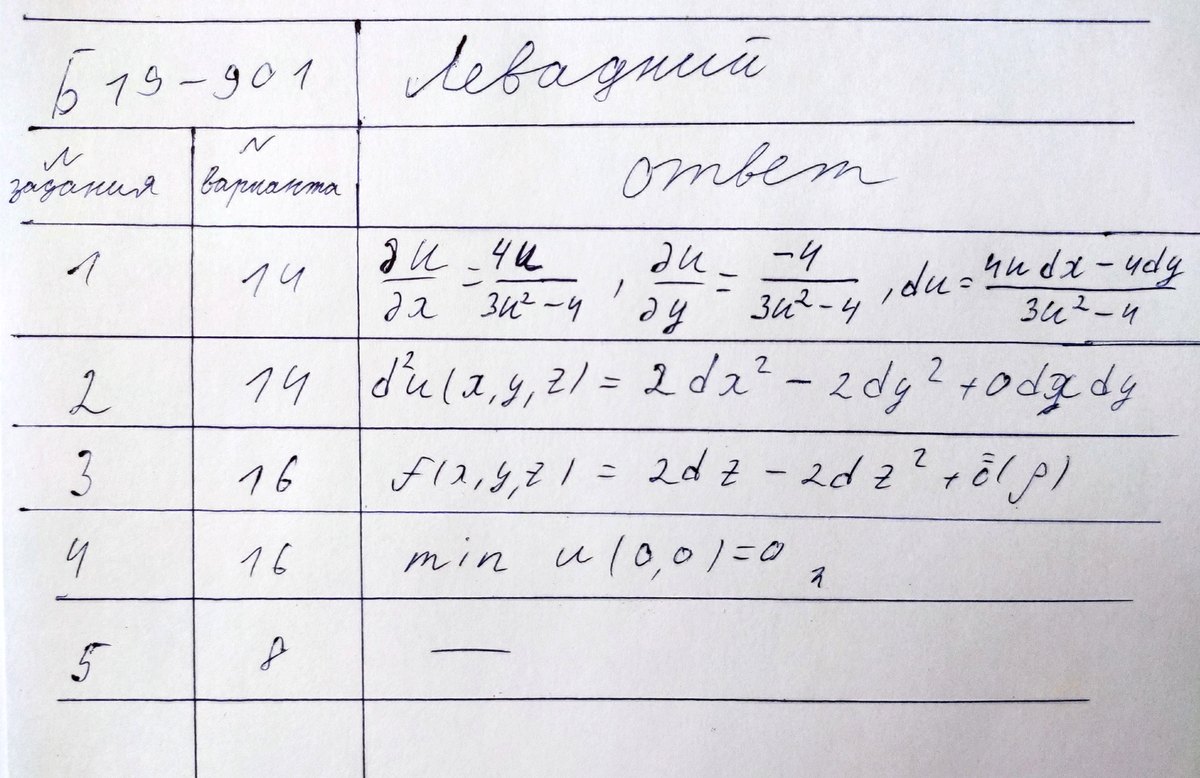 Б19-901 Левадний
N задания N варианта ответ
1 14 ∂u/∂x = 4u/(3u²-4), ∂u/∂y = -4/(3u²-4), du = (4u dx - 4dy)/(3u²-4)
2 14 d²u(x,y,z) = 2dx² - 2dy² + 0dxdy
3 16 f(x,y,z) = 2dz - 2dz² + ō(ρ)
4 16 min u(0,0)=0
5 8 —